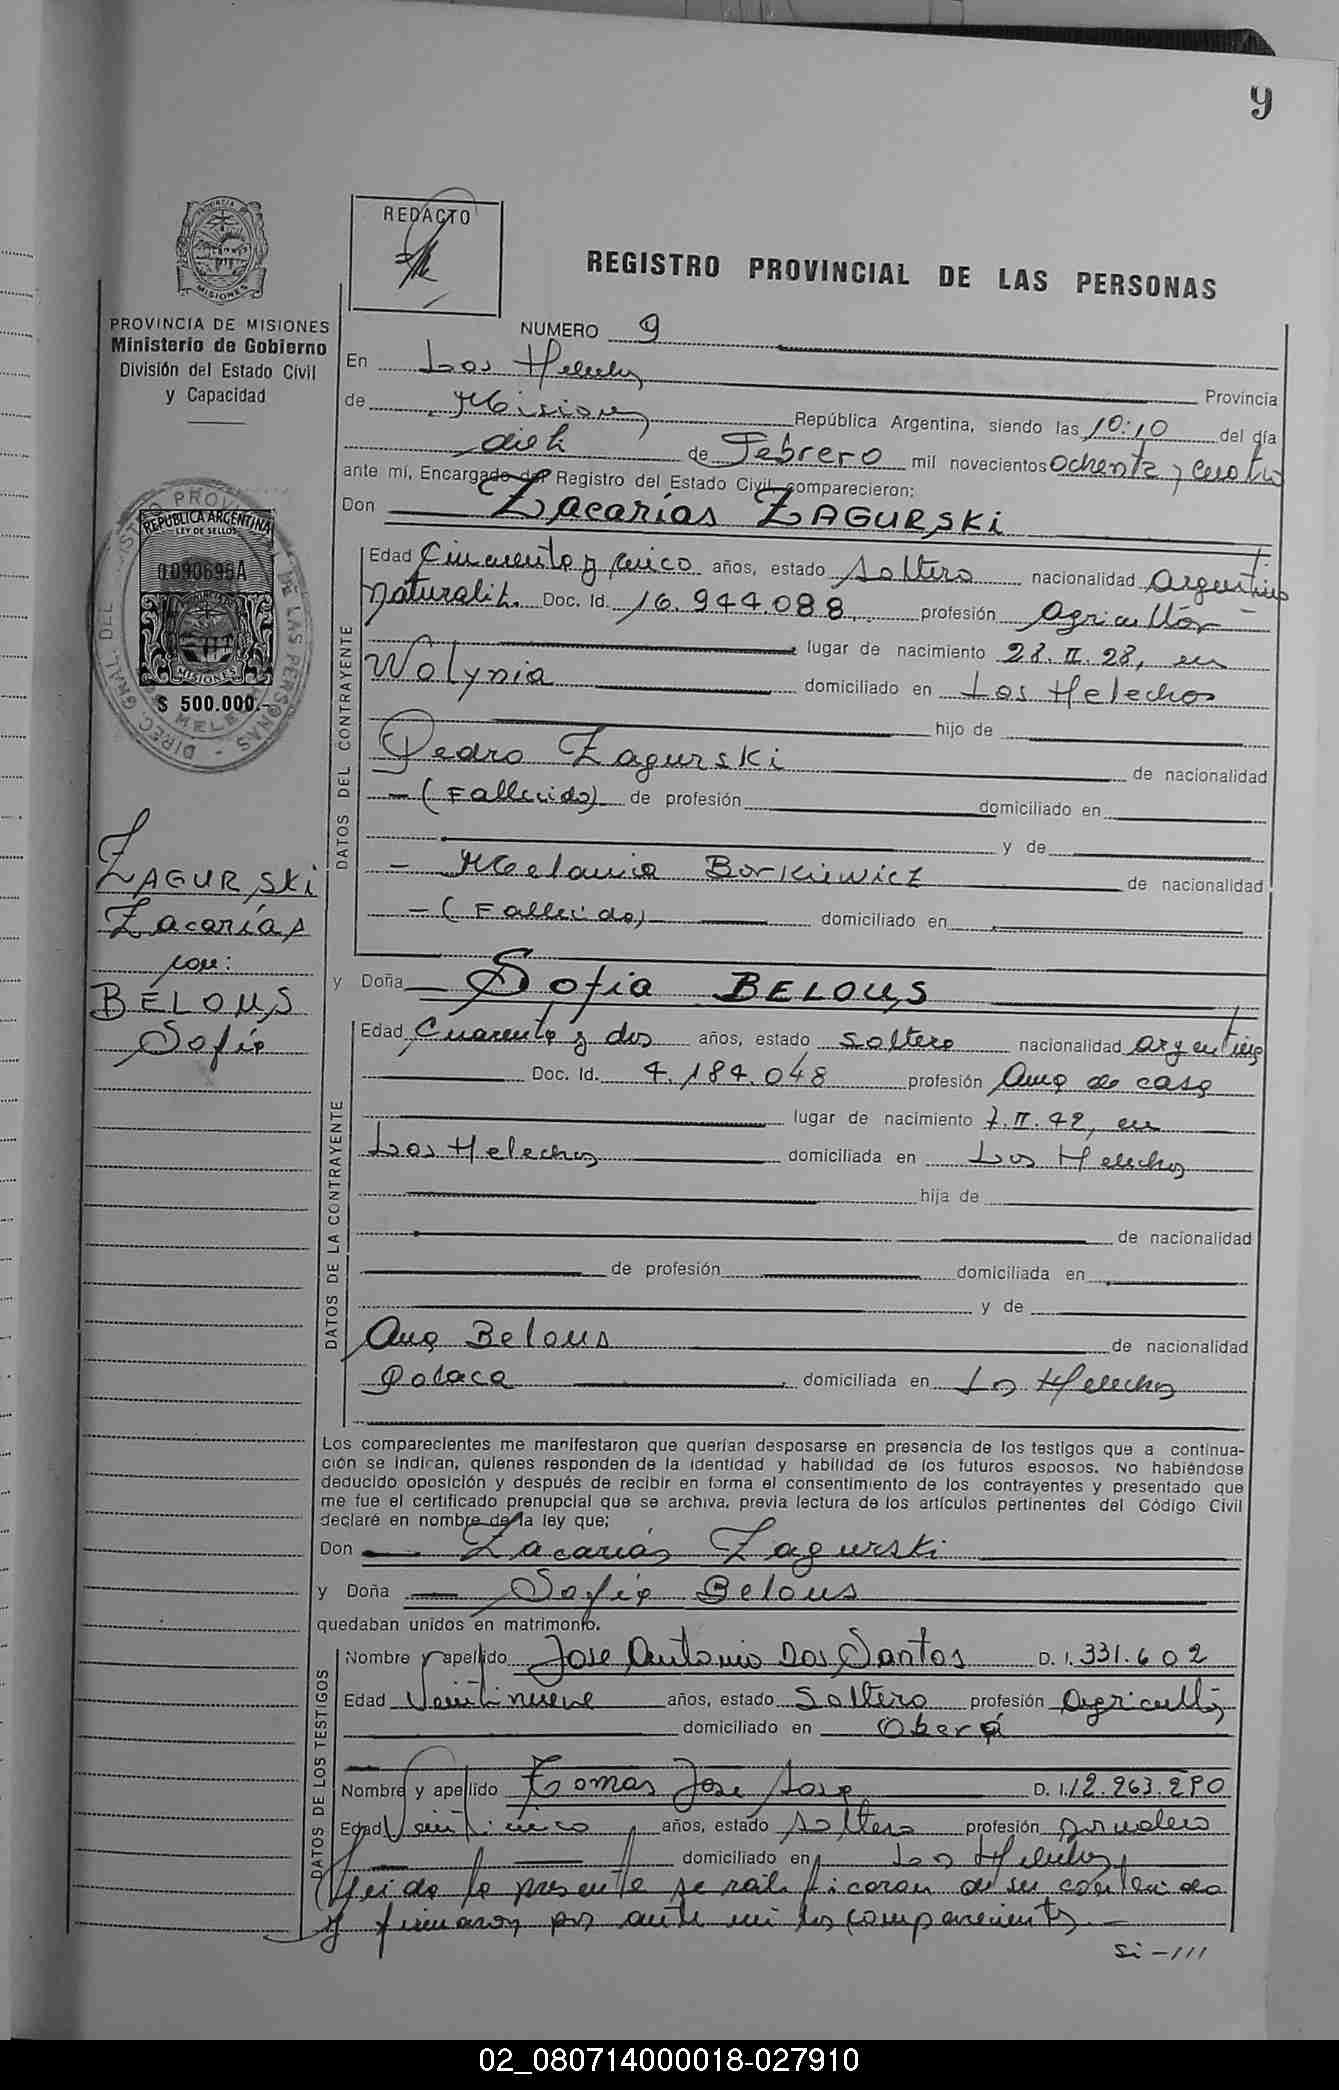 9
REDACTO
REGISTRO PROVINCIAL DE LAS PERSONAS
PROVINCIA DE MISIONES
Ministerio de Gobierno
División del Estado Civil
y Capacidad
REPUBLICA ARGENTINA
LEY DE SELLOS
0090696A
MISIONES
$ 500.000.-
ZAGURSKi
Zacarías
con:
BELOUS
Sofia
NUMERO 9
En Los Helechos Provincia
de Misiones República Argentina, siendo las 10:10 del día
diez de Febrero mil novecientos Ochenta y cuatro
ante mí, Encargado del Registro del Estado Civil, comparecieron:
Don Zacarías ZAGURSKi
DATOS DEL CONTRAYENTE
Edad Cincuenta y cinco años, estado soltero nacionalidad argentino
naturaliz. Doc. Id. 16.944.088 profesión agricultor
lugar de nacimiento 28.II.28, en
Wolynia domiciliado en Los Helechos
hijo de
Pedro Zagurski de nacionalidad
- (Fallecido) de profesión domiciliado en
y de
- Melania Borkiewicz de nacionalidad
- (Fallecida) domiciliado en
y Doña Sofia BELOUS
DATOS DE LA CONTRAYENTE
Edad Cuarenta y dos años, estado soltera nacionalidad argentina
Doc. Id. 4.184.048 profesión Ama de casa
lugar de nacimiento 7.II.42, en
Los Helechos domiciliada en Los Helechos
hija de
de nacionalidad
de profesión domiciliada en
y de
Ana Belous de nacionalidad
Polaca domiciliada en Los Helechos
Los comparecientes me manifestaron que querían desposarse en presencia de los testigos que a continua-
ción se indican, quienes responden de la identidad y habilidad de los futuros esposos. No habiéndose
deducido oposición y después de recibir en forma el consentimiento de los contrayentes y presentado que
me fue el certificado prenupcial que se archiva, previa lectura de los artículos pertinentes del Código Civil
declaré en nombre de la ley que;
Don Zacarias Zagurski
y Doña Sofia Belous
quedaban unidos en matrimonio.
DATOS DE LOS TESTIGOS
Nombre y apellido Jose Antonio Dos Santos D. I. 331.602
Edad Veintinueve años, estado Soltero profesión Agricultor
domiciliado en Oberá
Nombre y apellido Tomas Jose Sosa D. I. 12.263.290
Edad Veinticinco años, estado soltero profesión jornalero
domiciliado en Los Helechos
Leida la presente se ratificaron de su contenido
y firmaron por ante mi los comparecientes.-
Si-///
02_080714000018-027910